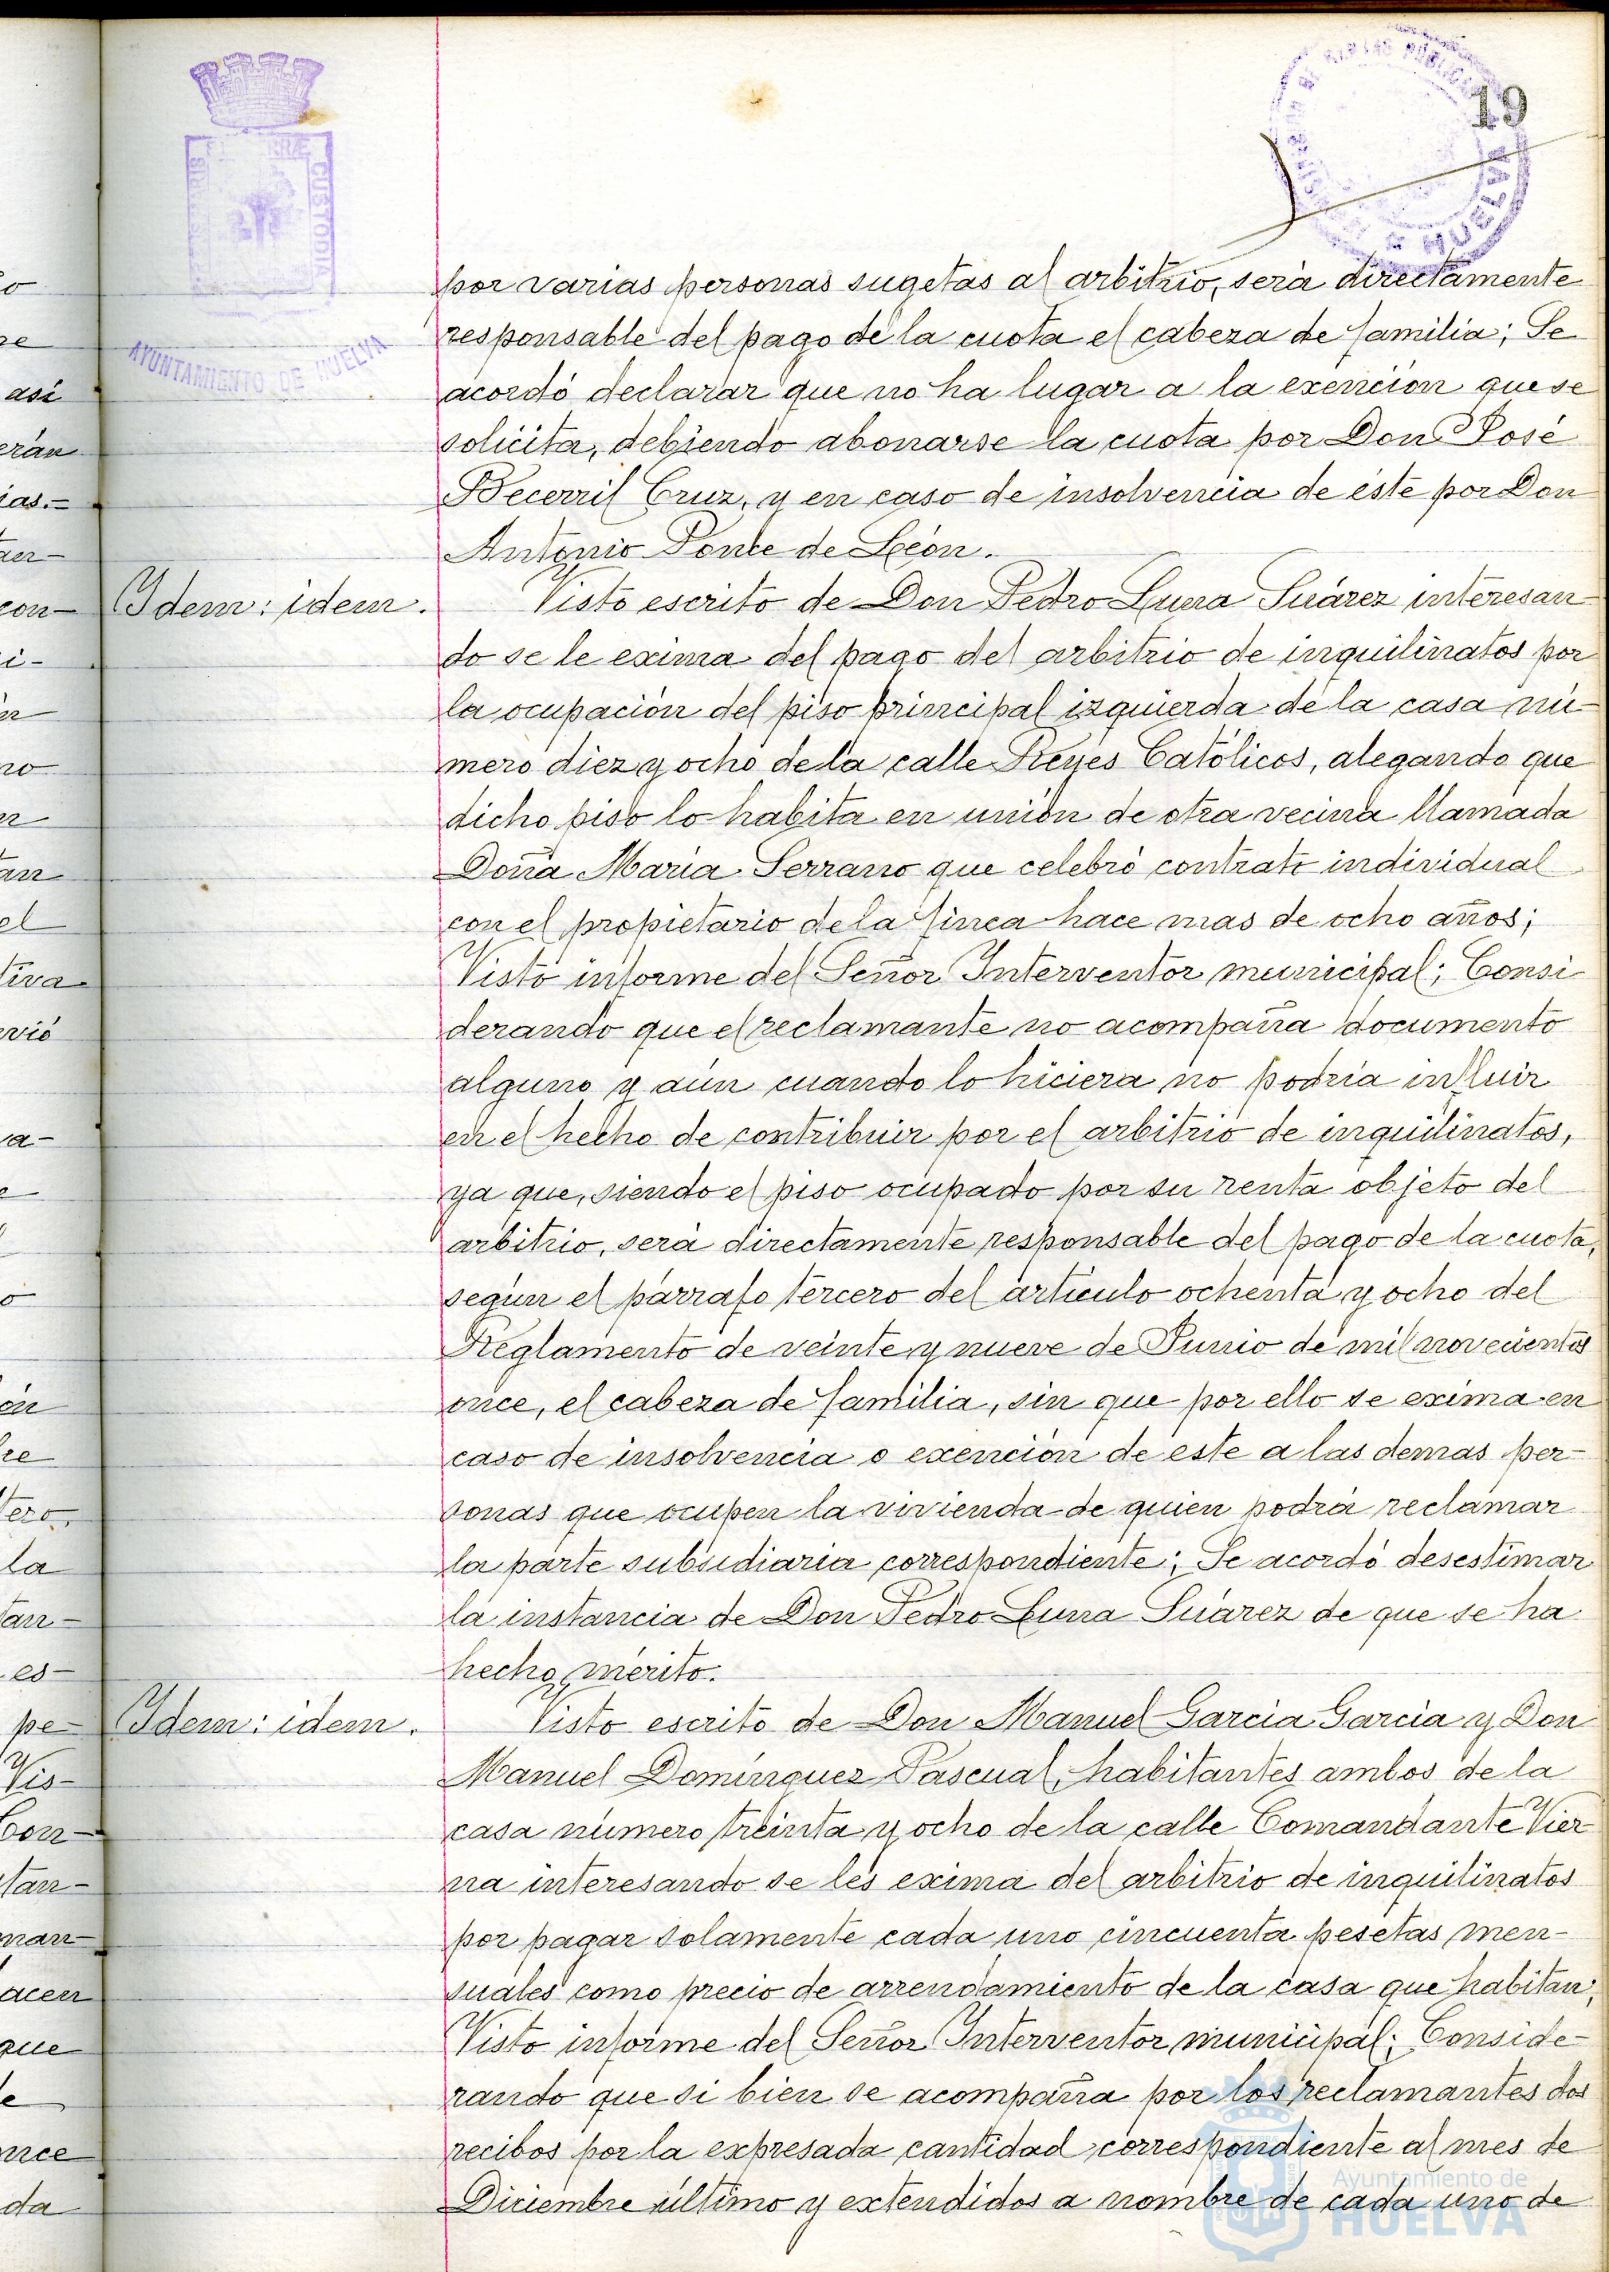 19
AYUNTAMIENTO DE HUELVA
CUSTODIA
HUELVA
por varias personas sugetas al arbitrio, será directamente
responsable del pago de la cuota el cabeza de familia; Se
acordó declarar que no ha lugar a la exención que se
solicita, debiendo abonarse la cuota por Don José
Becerril Cruz, y en caso de insolvencia de éste por Don
Antonio Ponce de León.
Idem: idem.
Visto escrito de Don Pedro Luna Suárez interesan
do se le exima del pago del arbitrio de inquilinatos por
la ocupación del piso principal izquierda de la casa nú-
mero diez y ocho de la calle Reyes Católicos, alegando que
dicho piso lo habita en unión de otra vecina llamada
Doña María Serrano que celebró contrato individual
con el propietario de la finca hace mas de ocho años;
Visto informe del Señor Interventor municipal; Consi
derando que el reclamante no acompaña documento
alguno y aún cuando lo hiciera no podría influir
en el hecho de contribuir por el arbitrio de inquilinatos,
ya que, siendo el piso ocupado por su renta objeto del
arbitrio, será directamente responsable del pago de la cuota,
según el párrafo tercero del artículo ochenta y ocho del
Reglamento de veinte y nueve de Junio de mil novecientos
once, el cabeza de familia, sin que por ello se exima en
caso de insolvencia o exención de este a las demas per-
sonas que ocupen la vivienda de quien podrá reclamar
la parte subsidiaria correspondiente; Se acordó desestimar
la instancia de Don Pedro Luna Suárez de que se ha
hecho mérito.
Idem: idem.
Visto escrito de Don Manuel Garcia Garcia y Don
Manuel Domínguez Pascual, habitantes ambos de la
casa número treinta y ocho de la calle Comandante Vier
na interesando se les exima del arbitrio de inquilinatos
por pagar solamente cada uno cincuenta pesetas men-
suales como precio de arrendamiento de la casa que habitan;
Visto informe del Señor Interventor municipal; Conside-
rando que si bien se acompaña por los reclamantes dos
recibos por la expresada cantidad correspondiente al mes de
Diciembre último y extendidos a nombre de cada uno de
Ayuntamiento de
HUELVA